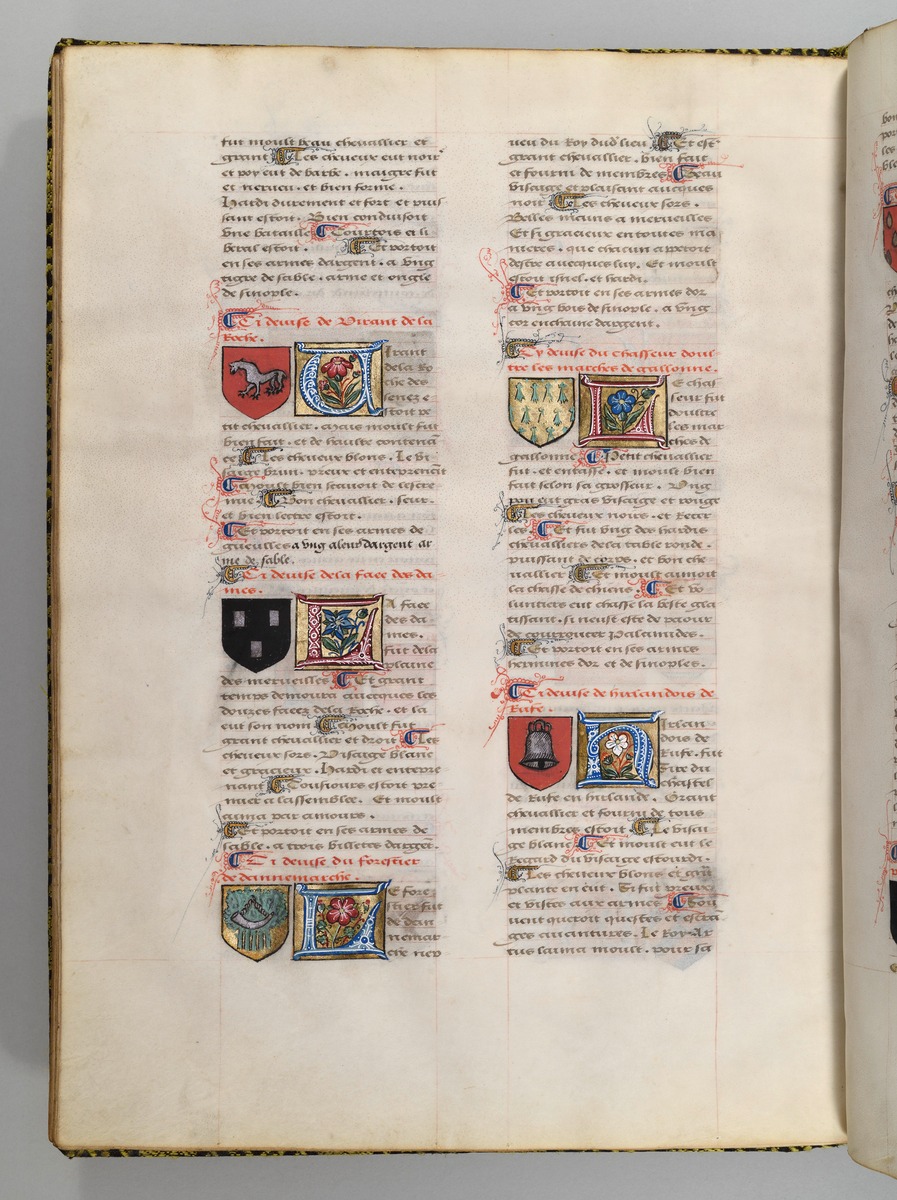 fut moult beau chevallier et
grant Les cheveux eut noir
et poy eut de barbe. maigre fut
et nerveu. et bien forme.
Hardi durement et fort et puis
sant estoit. Bien conduisoit
vne bataille Courtois et li
beral estoit. Et portoit
en ses armes dargent. a vng
tigre de sable. arme et ongle
de sinople.
Ci devise de Virant de la
Roche.
Irant
de la Ro
che des
estoit pe
tit chevallier. Mais moult fut
bien fait. et de haulte contenā
ce Les cheveux blons. Le vi
saige brun. preux et entreprenāt
Moult bien scavoit de lescre
mie Bon chevallier. seur.
et bien lectre estoit.
Et portoit en ses armes de
gueulles a vng dargent ar
me de sable.
Ci devise de la face des da
mes.
A face
des da
mes.
fut de la
plaine
des merveilles Et grant
temps demoura avecques les
douzes faees de la Roche. et la
eut son nom Moult fut
grant chevallier et droit Les
cheveux sors. Visaige blanc
et gracieux. Hardi et entrepre
nant Tousiours estoit pre
mier a lassemblee. Et moult
ama par amours.
Et portoit en ses armes de
sable. a trois billettes dargēt.
Ci devise du forestier
de dannemarche.
E fores
stier fut
de dan
nemar
che nep
veu du Roy dud' lieu Et est
grant chevallier. bien fait
et fourni de membres Beau
visaige et plaisant avecques
noit Les cheveux sors.
Belles mains a merveilles
Et si gracieux en toutes ma
nieres. que chacun apetoit
destre avecques luy. Et moult
estoit isnel. et hardi.
Et portoit en ses armes dor
a vng bois de sinople. a vng
cor enchaine dargent.
Cy devise du chasseur doul
tre les marches de gallonne.
E chas
seur fut
doultre
les mar
ches de
gallonne Petit chevallier
fut. et entasse. et moult bien
fait selon sa grosseur. Vng
pou eut gras visaige et rouge
Les cheveux noirs. et Recer
les. Et fut vng des hardis
chevalliers de la table ronde.
puissant de corps. et bon che
vallier Et moult aimoit
la chasse de chiens. Et vo
luntiers eut chasse la beste gla
tissant. si neust este de paour
de courroucer Palamides.
Et portoit en ses armes
hermines dor et de sinoples.
Ci devise de hirlandois de
Rufe.
Irlan
dois de
Rufe. fut
Sire du
chastel
de Rufe en hirlande. Grant
chevallier et fourni de tous
membres estoit. Le visai
ge blanc Et moult eut le
Regard du visaige estourdi.
Les cheveux blons et grāt
plante en eut. Si fut preux
et vistes aux armes Sou
vent queroit questes et estrā
ges avantures. Le Roy Ar
tus laima moult. pour sa